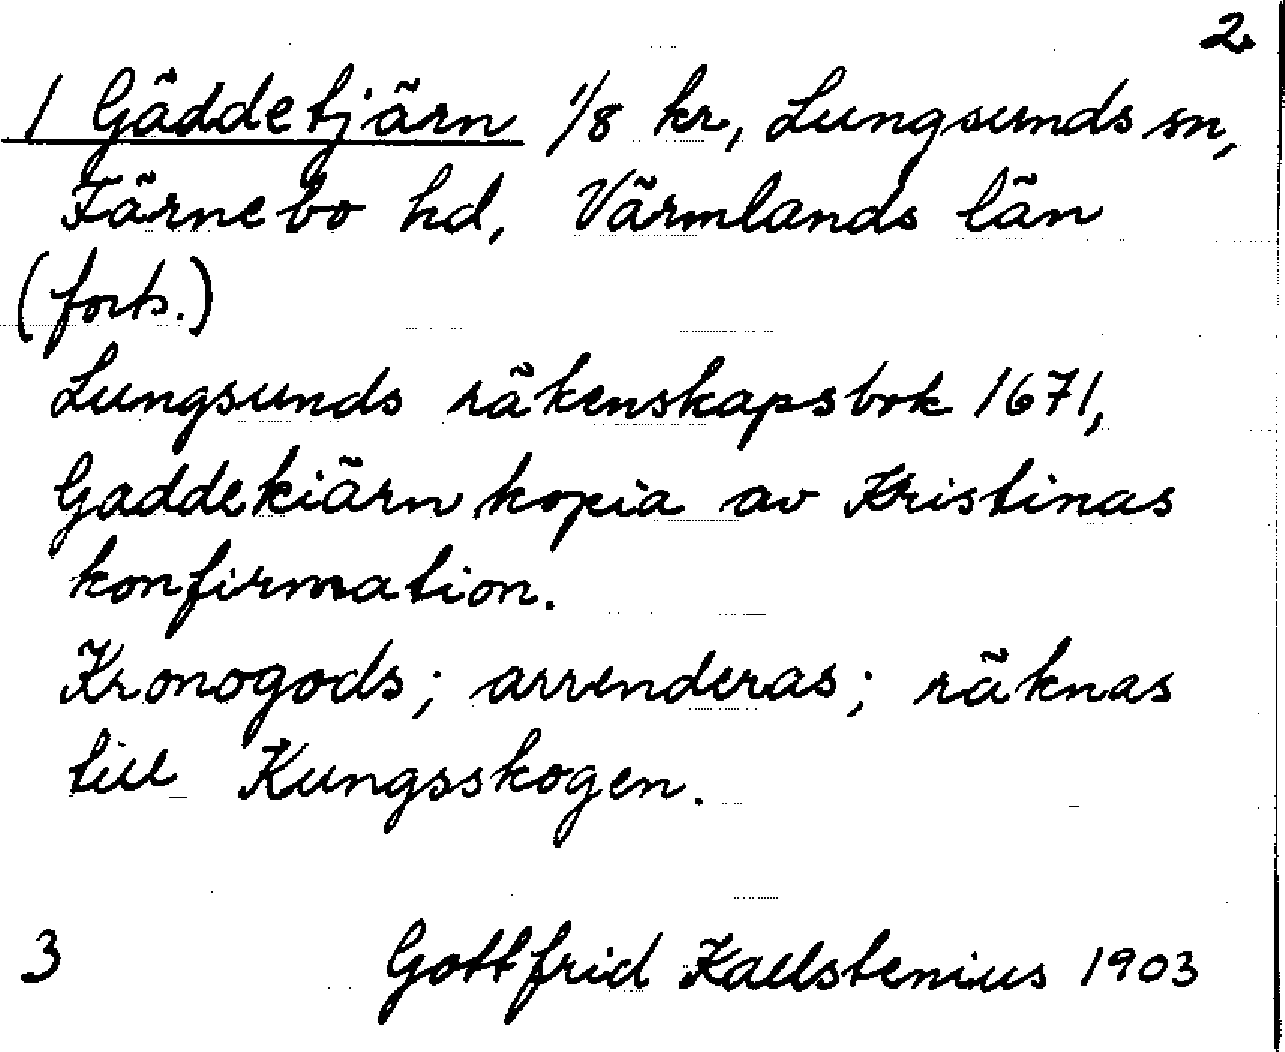 2.
1 Gäddetjärn 1/8 kr, Lungsunds sn,
Färnebo hd, Värmlands län
(forts.)
Lungsunds räkenskapsbok 1671,
Gaddekiärn kopia av Kristinas
konfirmation.
Kronogods; arrenderas; räknas
till Kungsskogen.
3 Gottfrid Kallstenius 1903